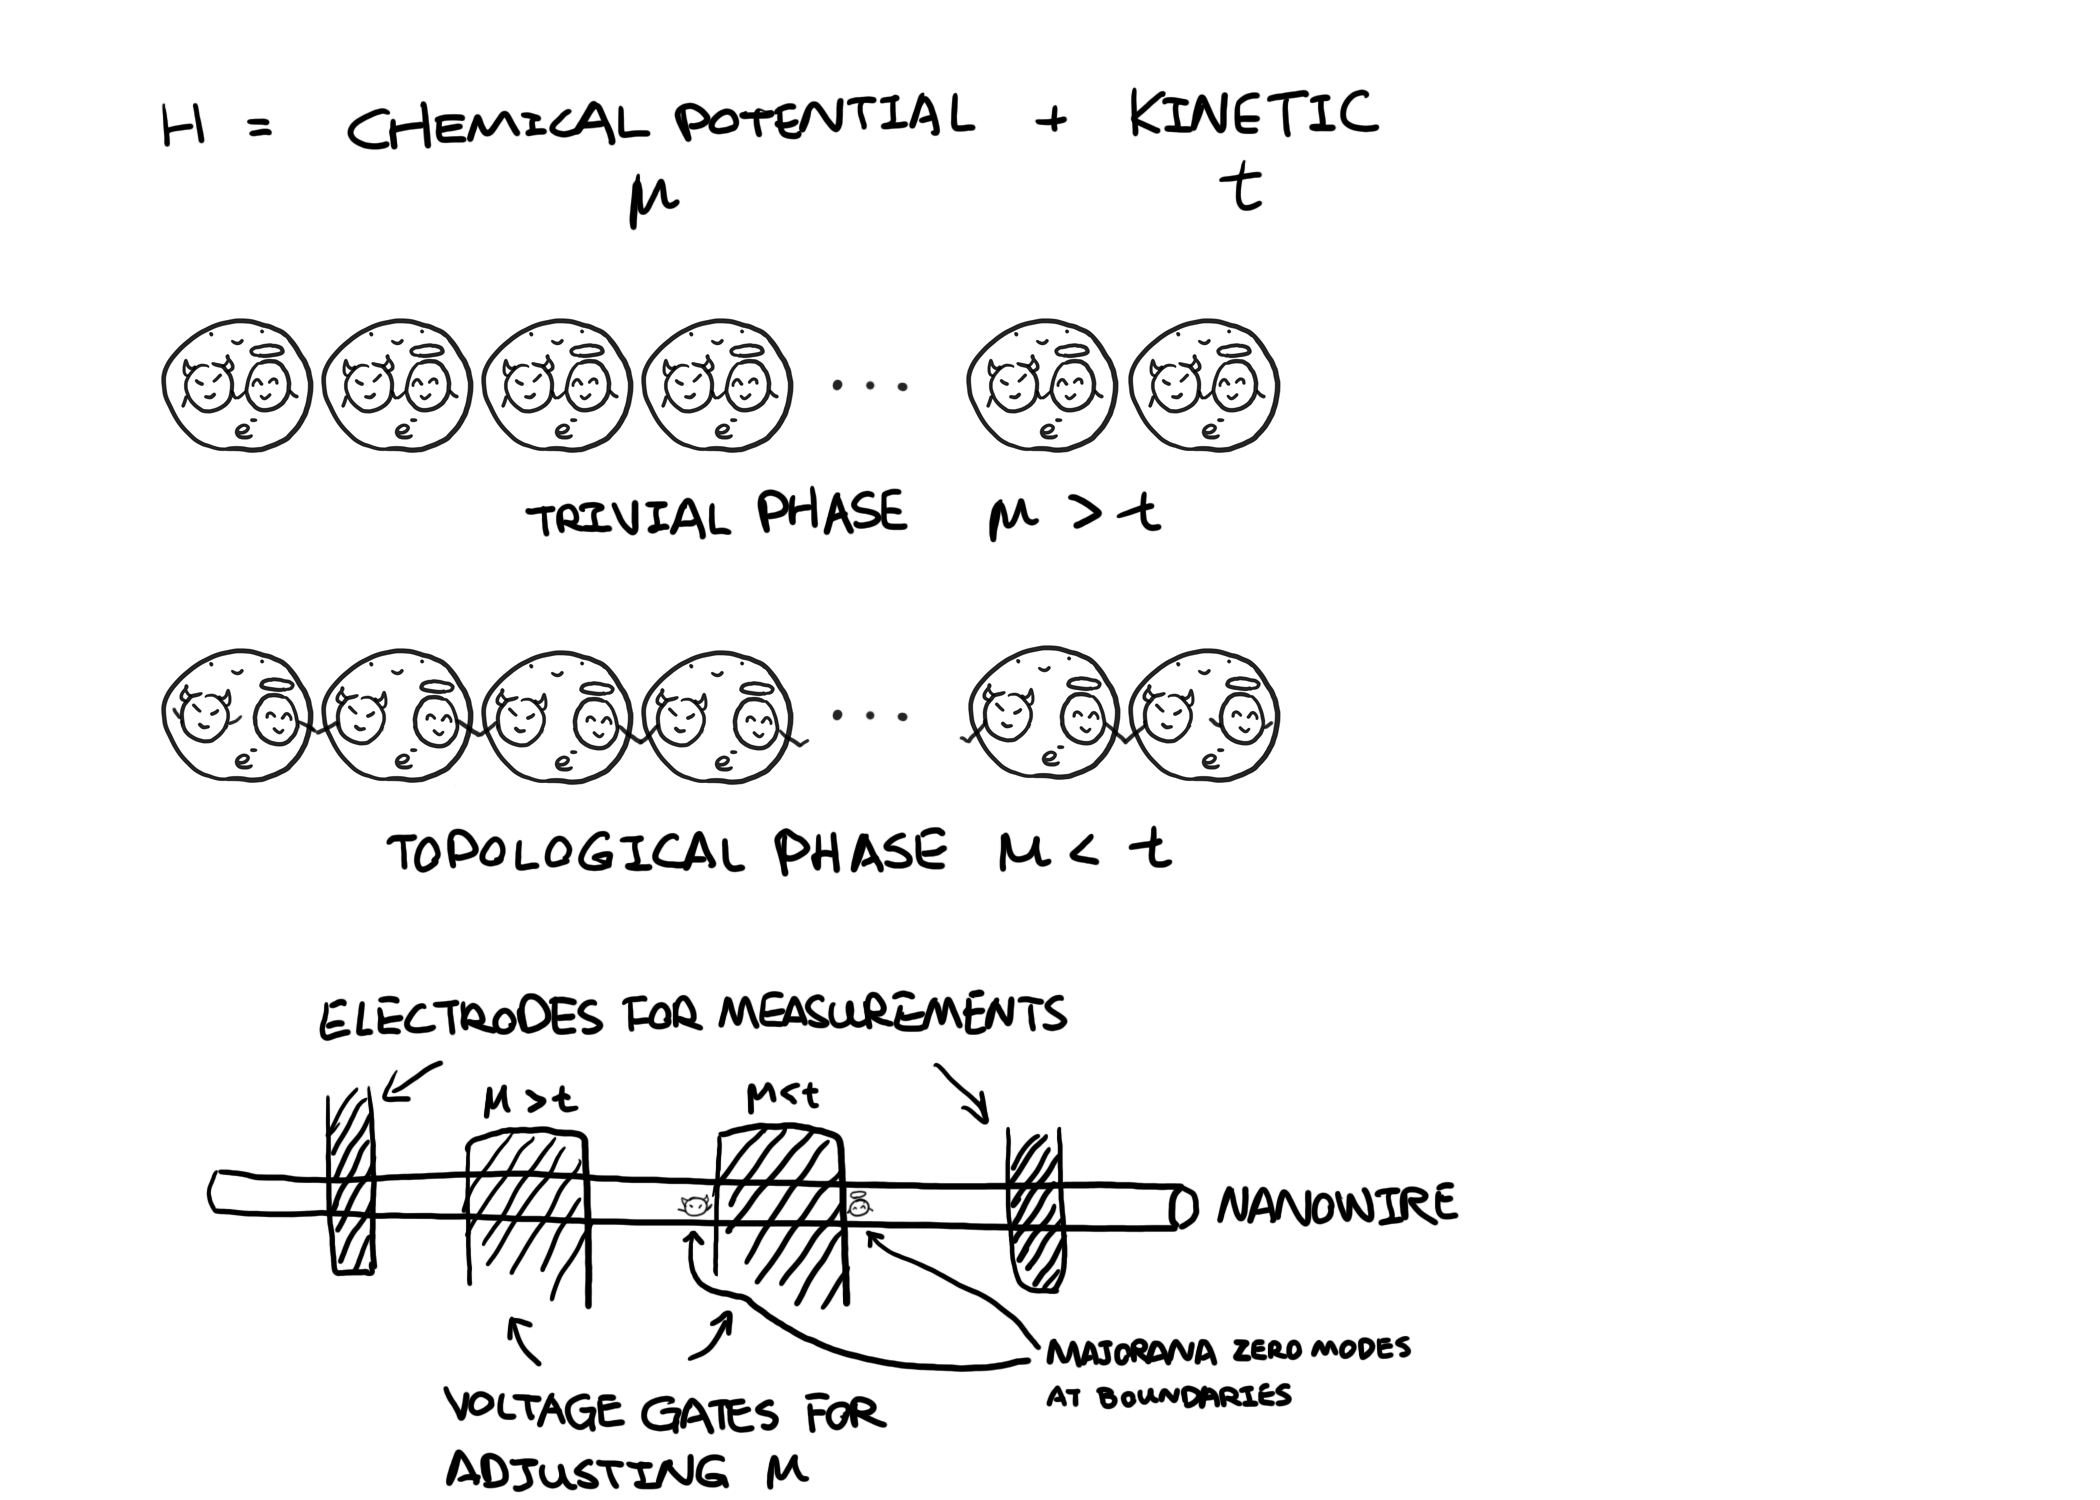 H = CHEMICAL POTENTIAL + KINETIC
μ t
e⁻ e⁻ e⁻ e⁻ ... e⁻ e⁻
TRIVIAL PHASE μ > t
e⁻ e⁻ e⁻ e⁻ ... e⁻ e⁻
TOPOLOGICAL PHASE μ < t
ELECTRODES FOR MEASUREMENTS
μ > t μ < t
NANOWIRE
MAJORANA ZERO MODES
AT BOUNDARIES
VOLTAGE GATES FOR
ADJUSTING μ